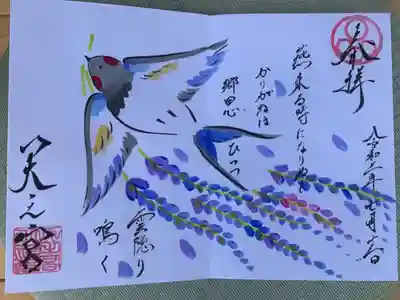 奉拝
令和二年七月
燕来る時になりぬと
かりがねは
郷思ひつつ
雲隠り
鳴く